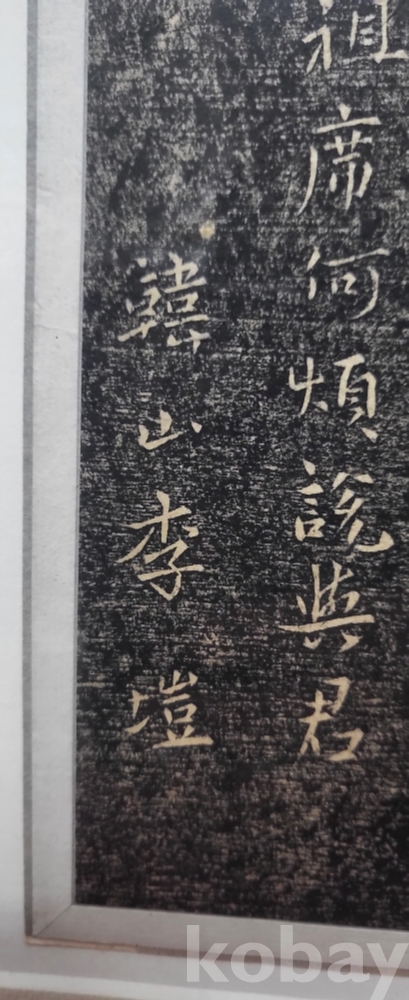 祖席何煩說與君
韓山李塏
kobay